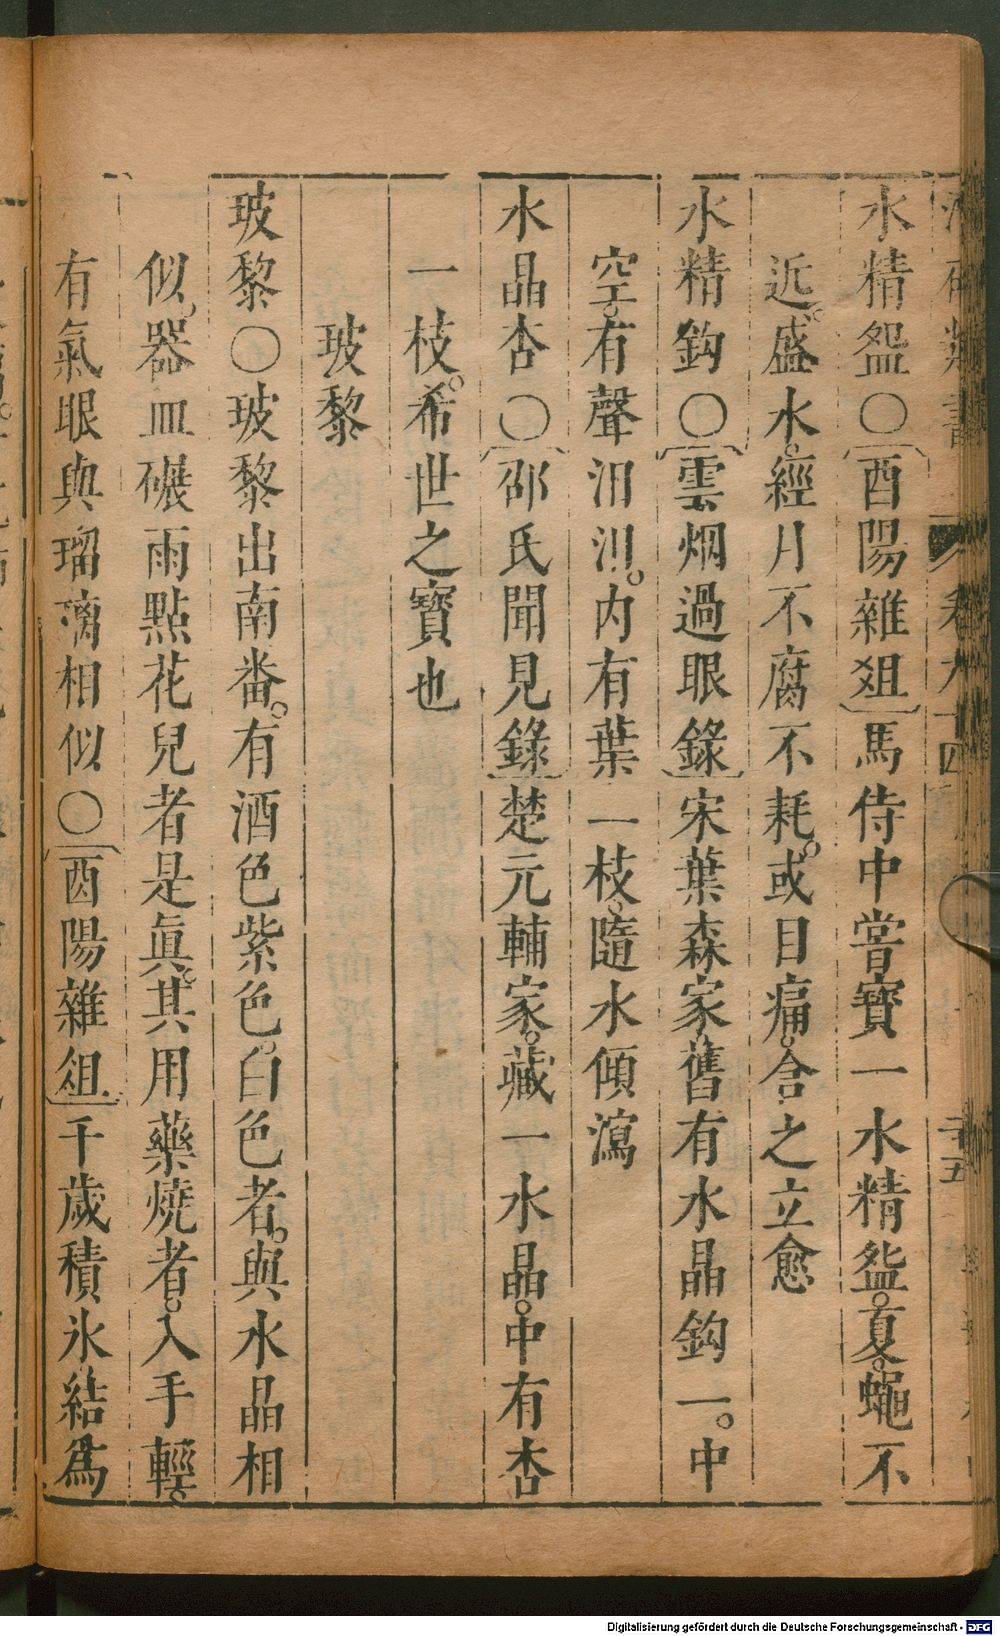 水精盌〇酉陽雜爼馬侍中嘗寶一水精盌。夏。蠅不
近。盛水。經月不腐不耗。或目痛。含之立愈
水精鈎〇雲烟過眼錄宋葉森家。舊有水晶鈎一。中
空。有聲汨汨。內有葉一枝。隨水傾瀉
水晶杏〇邵氏聞見錄楚元輔家。藏一水晶。中有杏
一枝。希世之寶也
玻黎
玻黎〇玻黎出南畨。有酒色紫色。白色者。與水晶相
似。器皿碾雨點花兒者是眞。其用藥燒者。入手輕。
有氣眼與瑠璃相似〇酉陽雜俎千歲積氷結爲
卷九十四
二十五
Digitalisierung gefördert durch die Deutsche Forschungsgemeinschaft - DFG